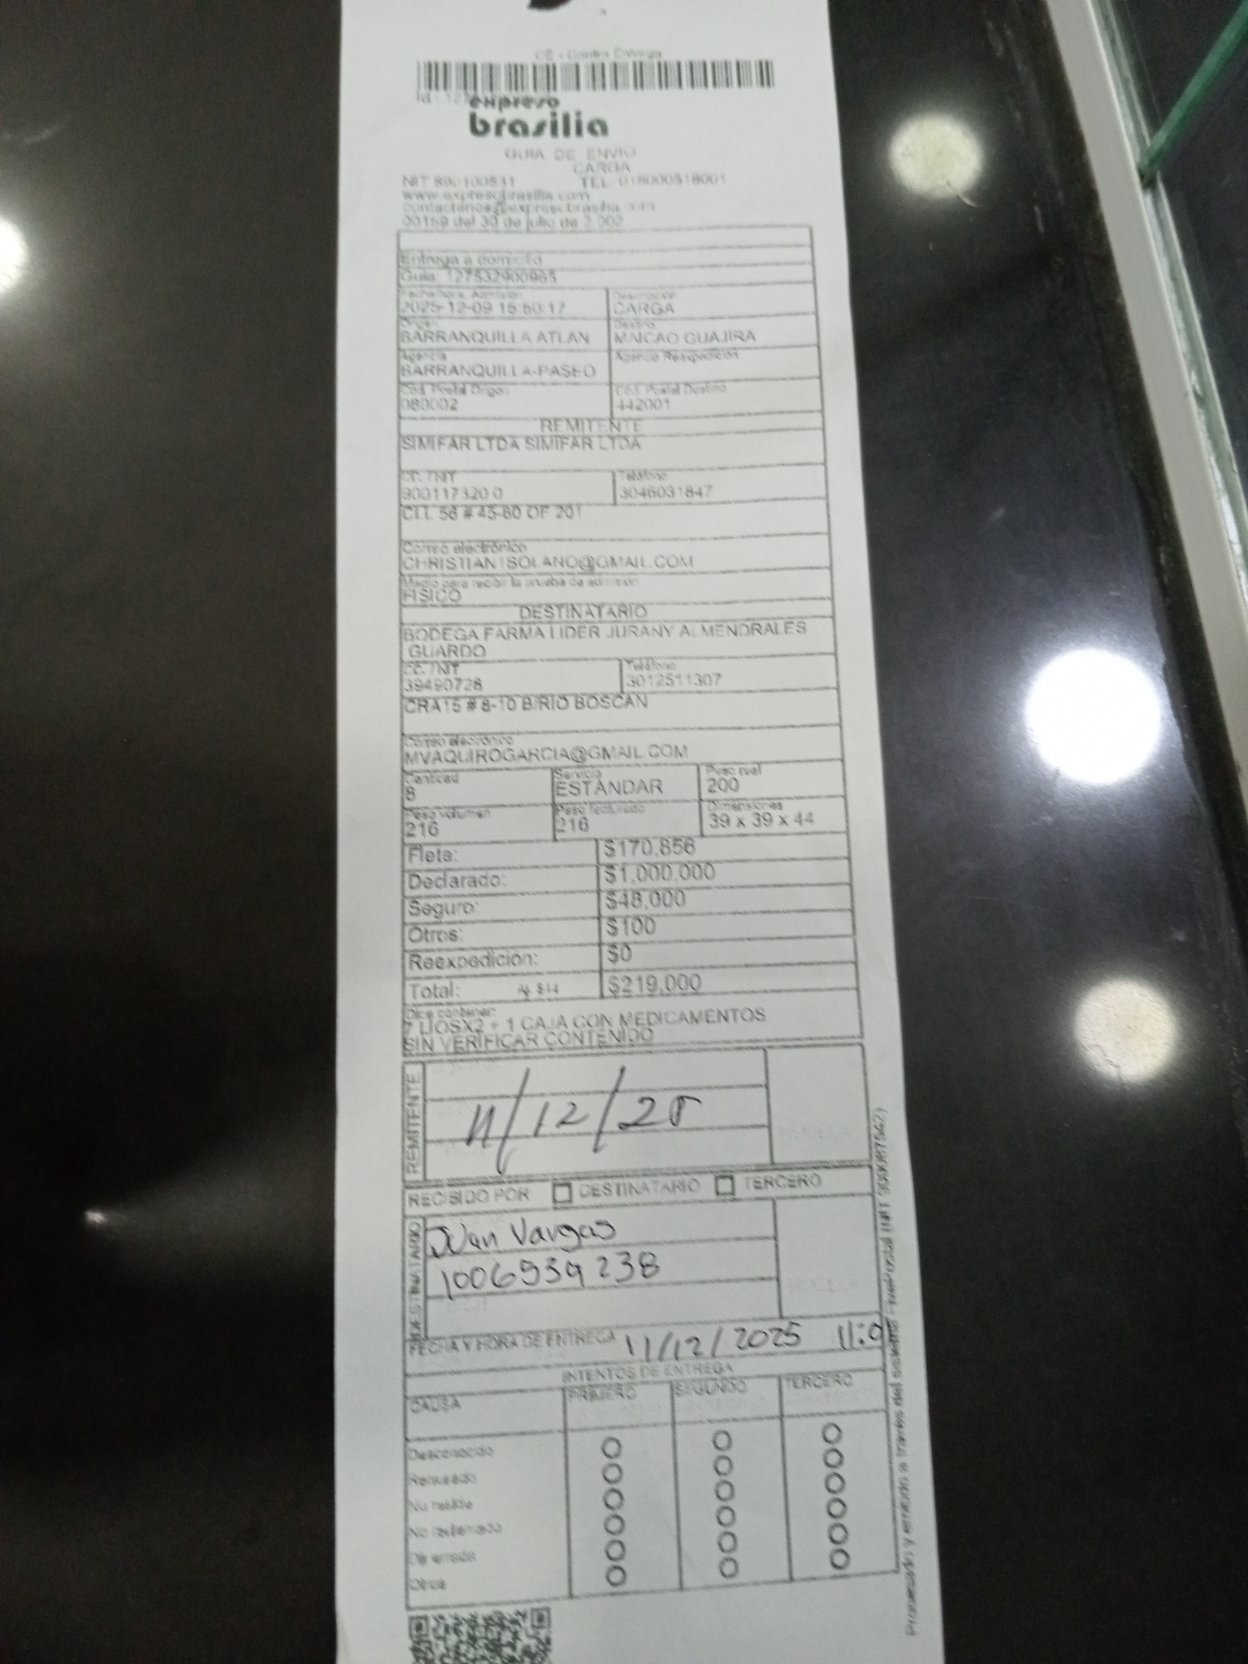 CE - Contra Entrega
expreso
brasilia
GUIA DE ENVIO
CARGA
NIT 890100531 TEL. 018000518001
www.expresobrasilia.com
contactenos@expresobrasilia.com
00169 del 30 de julio de 2.002
Entrega a domicilio
Guia: 127532900965
Fecha/hora Admisión Descripción
2025-12-09 15:50:17 CARGA
Origen Destino
BARRANQUILLA ATLAN MAICAO GUAJIRA
Agencia Agencia Reexpedición
BARRANQUILLA-PASEO
Cód. Postal Origen Cód. Postal Destino
080002 442001
REMITENTE
SIMIFAR LTDA SIMIFAR LTDA
CC. / NIT Teléfono
900117320 0 3046031847
CLL 56 # 45-60 OF 201
Correo electrónico
CHRISTIAN1SOLANO@GMAIL.COM
Medio para recibir la prueba de admisión
FISICO
DESTINATARIO
BODEGA FARMA LIDER JURANY ALMENDRALES
GUARDO
CC. / NIT Teléfono
39490728 3012511307
CRA15 # 8-10 B/RIO BOSCAN
Correo electrónico
MVAQUIROGARCIA@GMAIL.COM
Cantidad Servicio Peso real
8 ESTANDAR 200
Peso volumen Peso facturado Dimensiones
216 216 39 x 39 x 44
Flete: $170,856
Declarado: $1,000,000
Seguro: $48,000
Otros: $100
Reexpedición: $0
Total: Aj. $44 $219,000
Dice contener:
7 LIOSX2 + 1 CAJA CON MEDICAMENTOS
SIN VERIFICAR CONTENIDO
REMITENTE
11/12/25
RECIBIDO POR DESTINATARIO TERCERO
DESTINATARIO
Juan Vargas
1006939238
FECHA Y HORA DE ENTREGA 11/12/2025 11:0
INTENTOS DE ENTREGA
CAUSA PRIMERO SEGUNDO TERCERO
Desconocido
Rehusado
No reside
No reclamado
Dir errada
Otros
Procesado y emitido a través del sistema